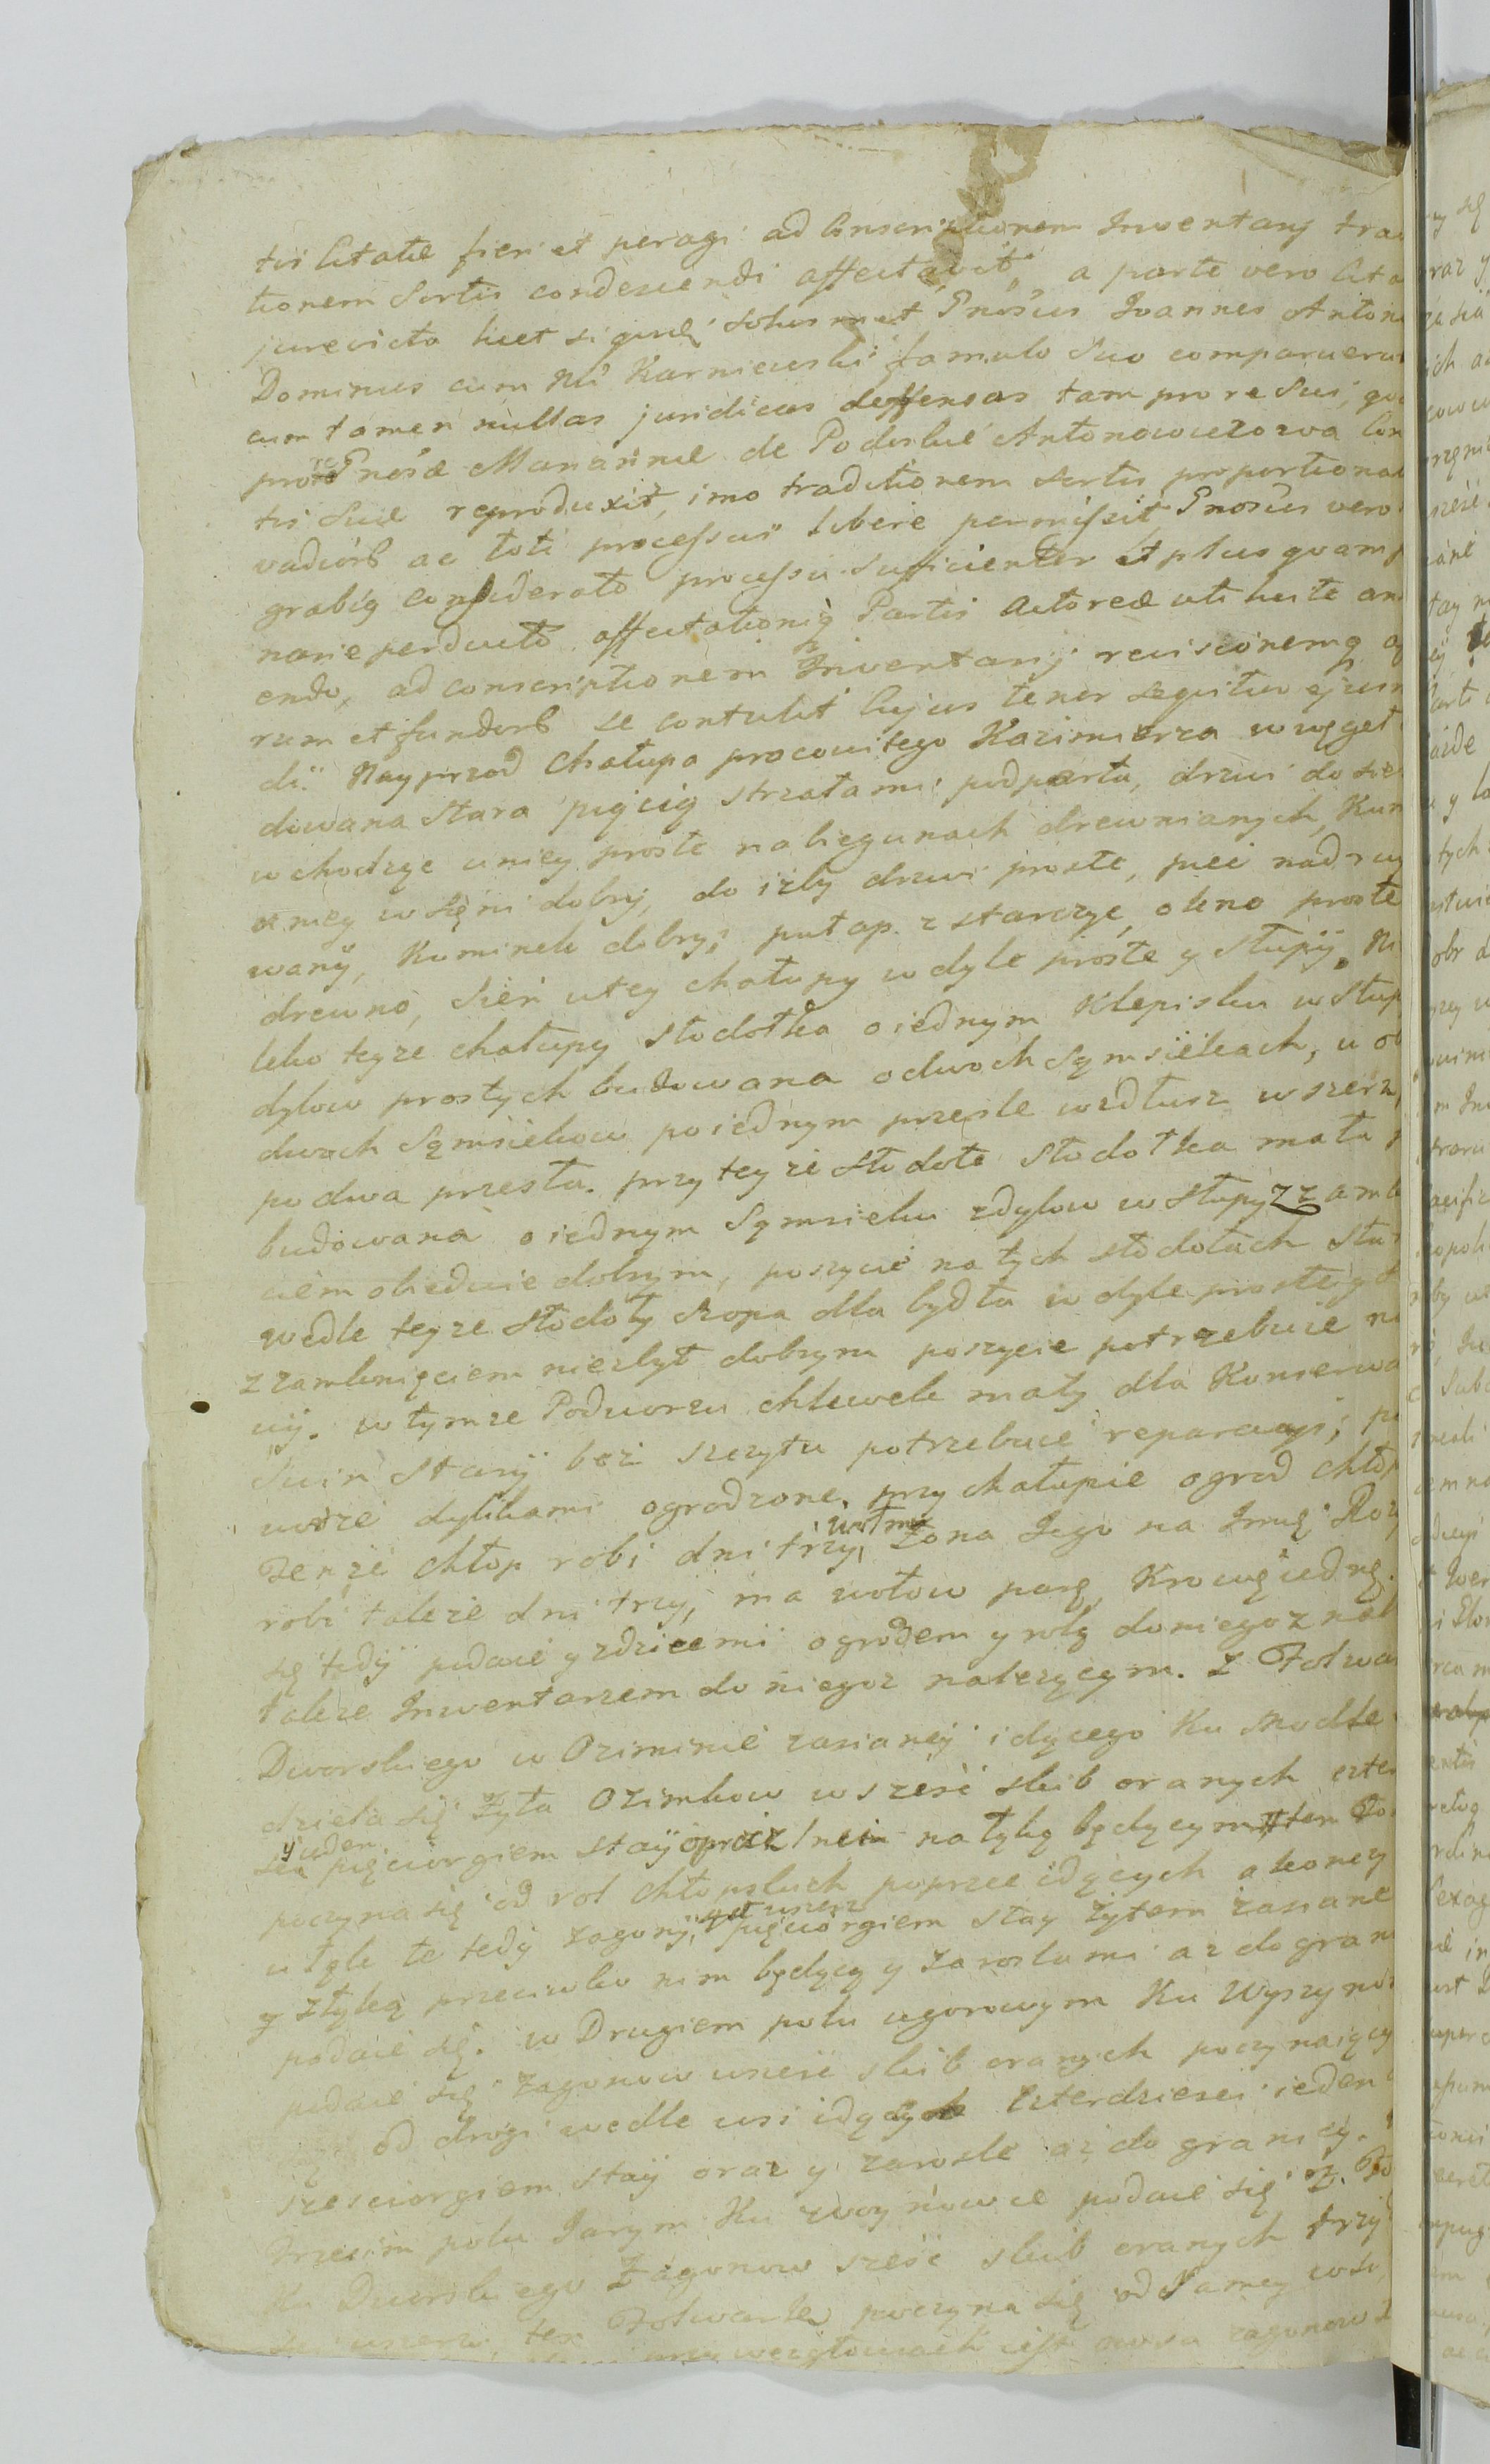 tis Citatæ fieri et peragi ad Conscriptionem Inventarij tra
tionem Sortis condescendi affectavit, a parte vero Cita
jurevicta licet siquid solusmet Gnosus Joannes Anton
Dominus cum Karniewski famulo Suo comparuerunt
cum tamen nullas juridicas deffensas tam pro re Sui, qu
pro re Gnosæ Marianne de Podoskie Antonowiczowa Con
tis Suæ reproduxit, imo traditionem Sortis proportionat
ac toti processui libere permissit, Gnosus vero
considerato processu Sufficienter et plus quam
perducto affectationiq Partis Actoreæ uti juste an
endo, ad conscriptionem Inventarij revisionemq
rum et fundorb se contulit Cujus tenor sequitur ejusm
di: Nayprzod Chałupa pracowitego Kazimierza w węgeł
dowana Stara pięcią strzałami podparta, drzwi do sie
wchodząc u niey proste na biegunach drewnianych, Kun
u niey w Sieni dobry, do izby drzwi proste, piec nadruy
wany, Kuminek dobry; pułap z starczyc, okno proste
drewno, Sień u tey chałupy w dyle proste y słupy. Ni
leko teyze chałupy stodołka o iednym Klepisku w słup
dylow prostych budowana o dwoch Sąmsiekach, u ob
dwoch Sąmsiekow po iednym przęśle wzdłusz wszerz
po dwa przęsła. przy teyze stodole Stodołka mała
budowana o iednym Sąmsieku z dylow w słupy z zamk
ciem obiedwie dobrym, poszycie na tych stodołach sta
wedle teyze stodoły szopa dla bydła w dyle proste y
z zamknięciem niezbyt dobrym poszycie potrzebuie
w tymze Podworzu chlewek mały dla Konserwa
Swiń Stary bez szczytu potrzebuie reparacyi;
worze dylikami ogrodzone, przy chałupie ogrod chłop
Tenze chłop robi dni trzy wołmi, Zona Jego na Imię Roz
robi takze dni trzy, ma wołow parę, Krowę iednę.
się tedy podaie y z dziecmi ogrodem y rolą do niego z nal
takze Inwentarzem do niegoz nalezącym. Z Folwar
Dworskiego w Oziminie zasianey idącego Ku
się Zyta Ozimkow w sześć skib oranych czter
y ieden pięciorgiem stay oprocz na łyką będącym ten
poczyna się od rol chłopskich poprzek idących a konczy
te tedy zagony, wszerz pięciorgiem stay Zytem zasiane
y z łyką przeciwko nim będącą y zaroslami az do gran
podaie się. w Drugiem polu ugorowym Ku Wyszyno
podaie się Zagonow w sześć skib oranych poczynaiący
od drogi wedle wsi idący Czterdziesci ieden
sześciorgiem stay oraz y zarosle az do granicy.
Trzecim polu Jarym Ku podaie się z Fo
Ku Dworskiego Zagonow sześć skib oranych trzy
wszerz, ten Folwarku poczyna się od Samey
iest owsa zagonow